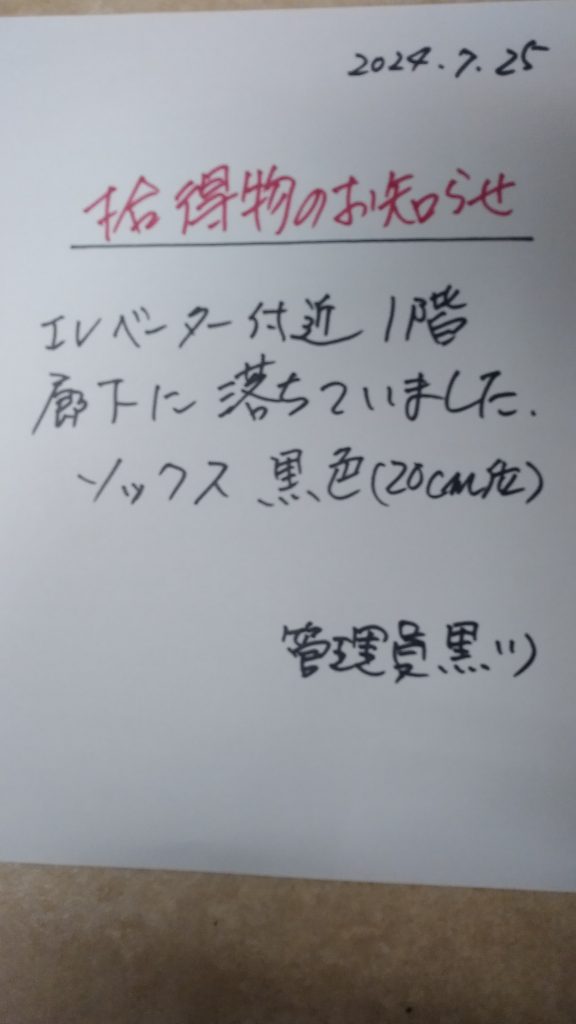 2024.7.25
拾得物のお知らせ
エレベーター付近 1階
廊下に落ちていました.
ソックス 黒色(20cm位)
管理員黒川